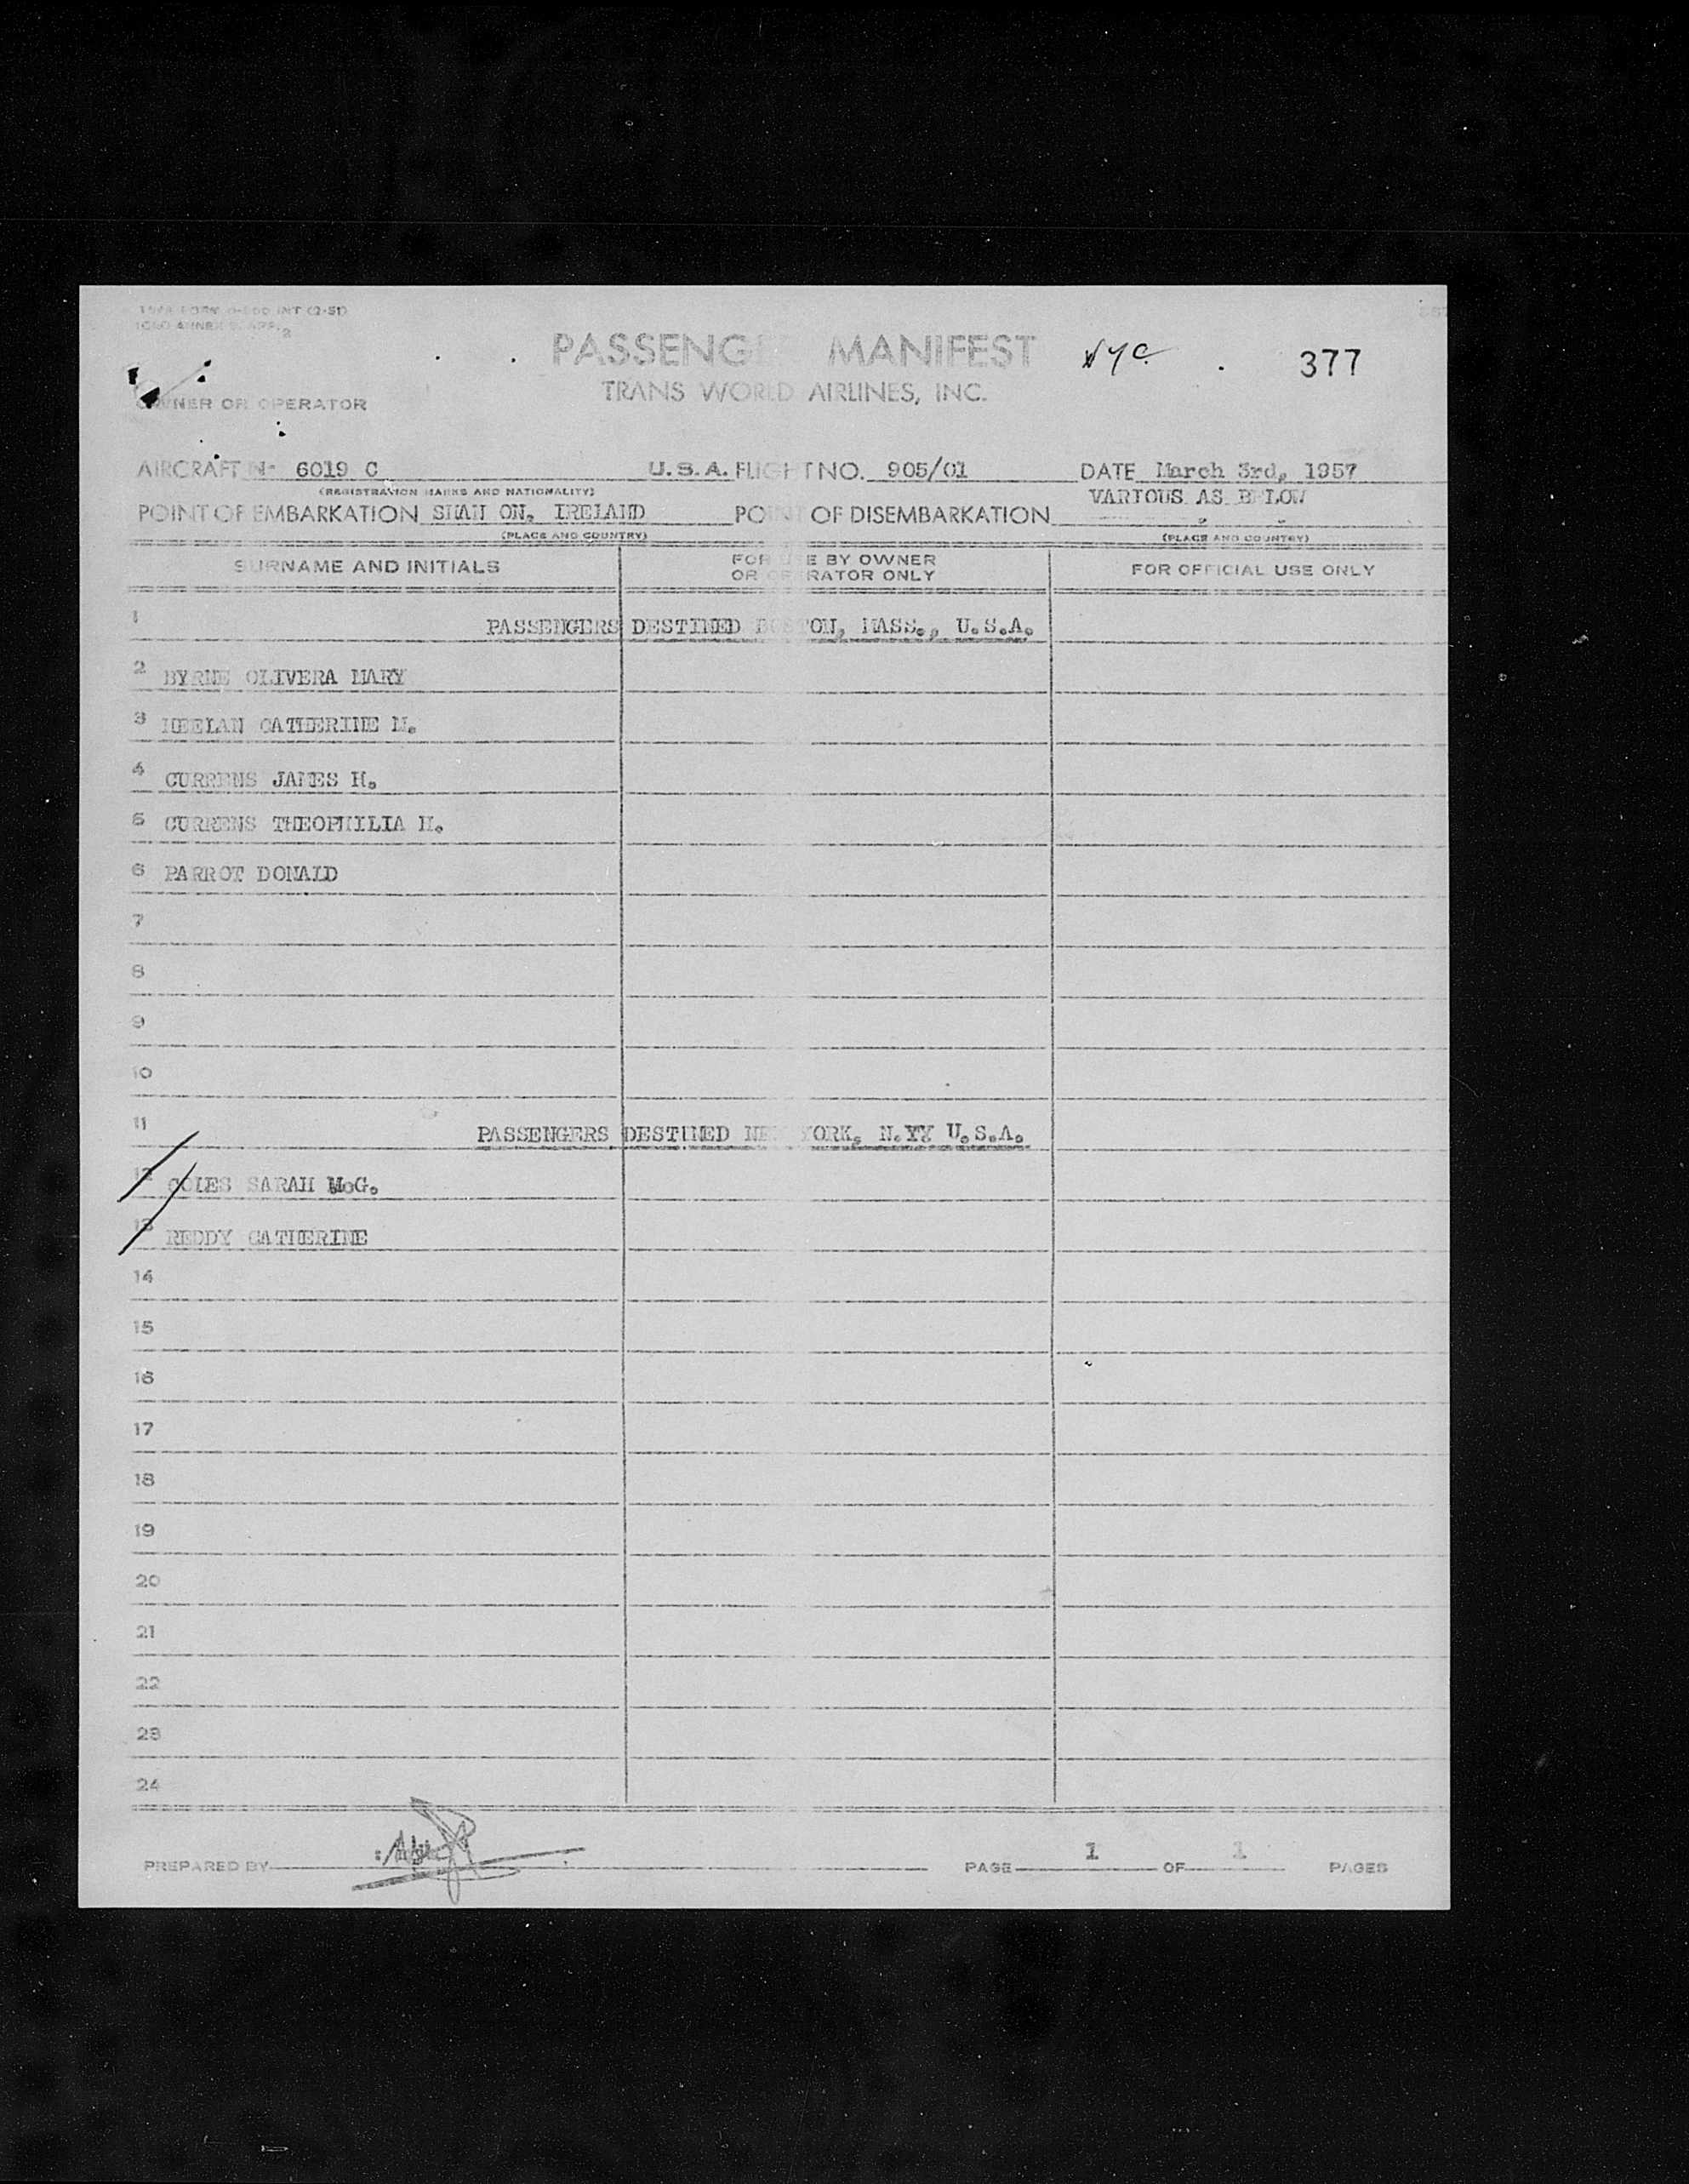 PASSENG MANIFEST NYC 377
TRANS WORLD AIRLINES, INC.
OWNER OR OPERATOR
AIRCRAFT No 6019 C U.S.A. FLIGHT NO. 905/01 DATE March 3rd, 1957
(REGISTRATION MARKS AND NATIONALITY) VARIOUS AS BELOW
POINT OF EMBARKATION SHAN ON, IRELAND POINT OF DISEMBARKATION
(PLACE AND COUNTRY) (PLACE AND COUNTRY)
SURNAME AND INITIALS FOR USE BY OWNER OR OPERATOR ONLY FOR OFFICIAL USE ONLY
1 PASSENGERS DESTINED BOSTON, MASS., U.S.A.
2 BYRNE OLIVERA MARY
3 HEELAN CATHERINE M.
4 CURRENS JAMES H.
5 CURRENS THEOPHILIA H.
6 PARROT DONALD
7
8
9
10
11 PASSENGERS DESTINED NEW YORK, N.YY U.S.A.
12 COLES SARAH McG.
13 REDDY CATHERINE
14
15
16
17
18
19
20
21
22
23
24
PREPARED BY PAGE 1 OF 1 PAGES